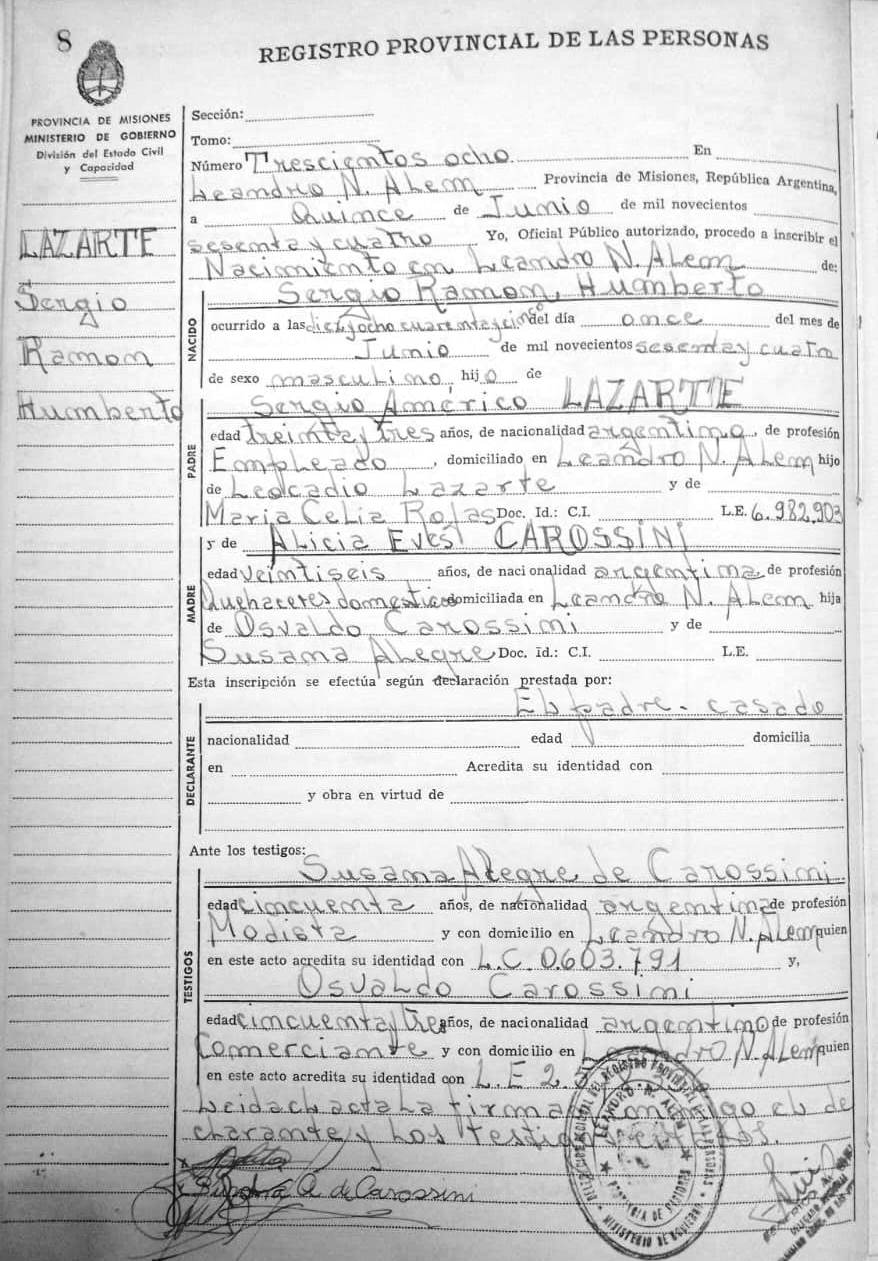 8
REGISTRO PROVINCIAL DE LAS PERSONAS
PROVINCIA DE MISIONES
MINISTERIO DE GOBIERNO
División del Estado Civil
y Capacidad
LAZARTE
Sergio
Ramon
Humberto
Sección:
Tomo:
Número Trescientos ocho En
Leandro N. Alem Provincia de Misiones, República Argentina,
a Quince de Junio de mil novecientos
sesenta y cuatro Yo, Oficial Público autorizado, procedo a inscribir el
Nacimiento en Leandro N. Alem de:
Sergio Ramon, Humberto
NACIDO
ocurrido a las diez y ocho cuarenta y cinco del día once del mes de
Junio de mil novecientos sesenta y cuatro
de sexo masculino, hijo de
Sergio Américo LAZARTE
PADRE
edad treinta y tres años, de nacionalidad argentino, de profesión
Empleado, domiciliado en Leandro N. Alem hijo
de Leocadio Lazarte y de
Maria Celia Rojas Doc. Id.: C.I. L.E. 6.982.903
y de Alicia Eves CAROSSINI
MADRE
edad veintiseis años, de nacionalidad argentina, de profesión
Quehaceres domesticos domiciliada en Leandro N. Alem hija
de Osvaldo Carossini y de
Susana Alegre Doc. Id.: C.I. L.E.
Esta inscripción se efectúa según declaración prestada por:
El padre - casado
DECLARANTE
nacionalidad edad domicilia
en Acredita su identidad con
y obra en virtud de
Ante los testigos:
Susana Alegre de Carossini
TESTIGOS
edad cincuenta años, de nacionalidad argentina de profesión
Modista y con domicilio en Leandro N. Alem quien
en este acto acredita su identidad con L.C 0.603.791 y,
Osvaldo Carossini
edad cincuenta y tres años, de nacionalidad argentino de profesión
Comerciante y con domicilio en Leandro N. Alem quien
en este acto acredita su identidad con L.E 2.
Leida el acta la firma conmigo el de
clarante y los testigos citados.
de Carossini
LEANDRO N. ALEM
PROVINCIA DE MISIONES
MINISTERIO DE GOBIERNO